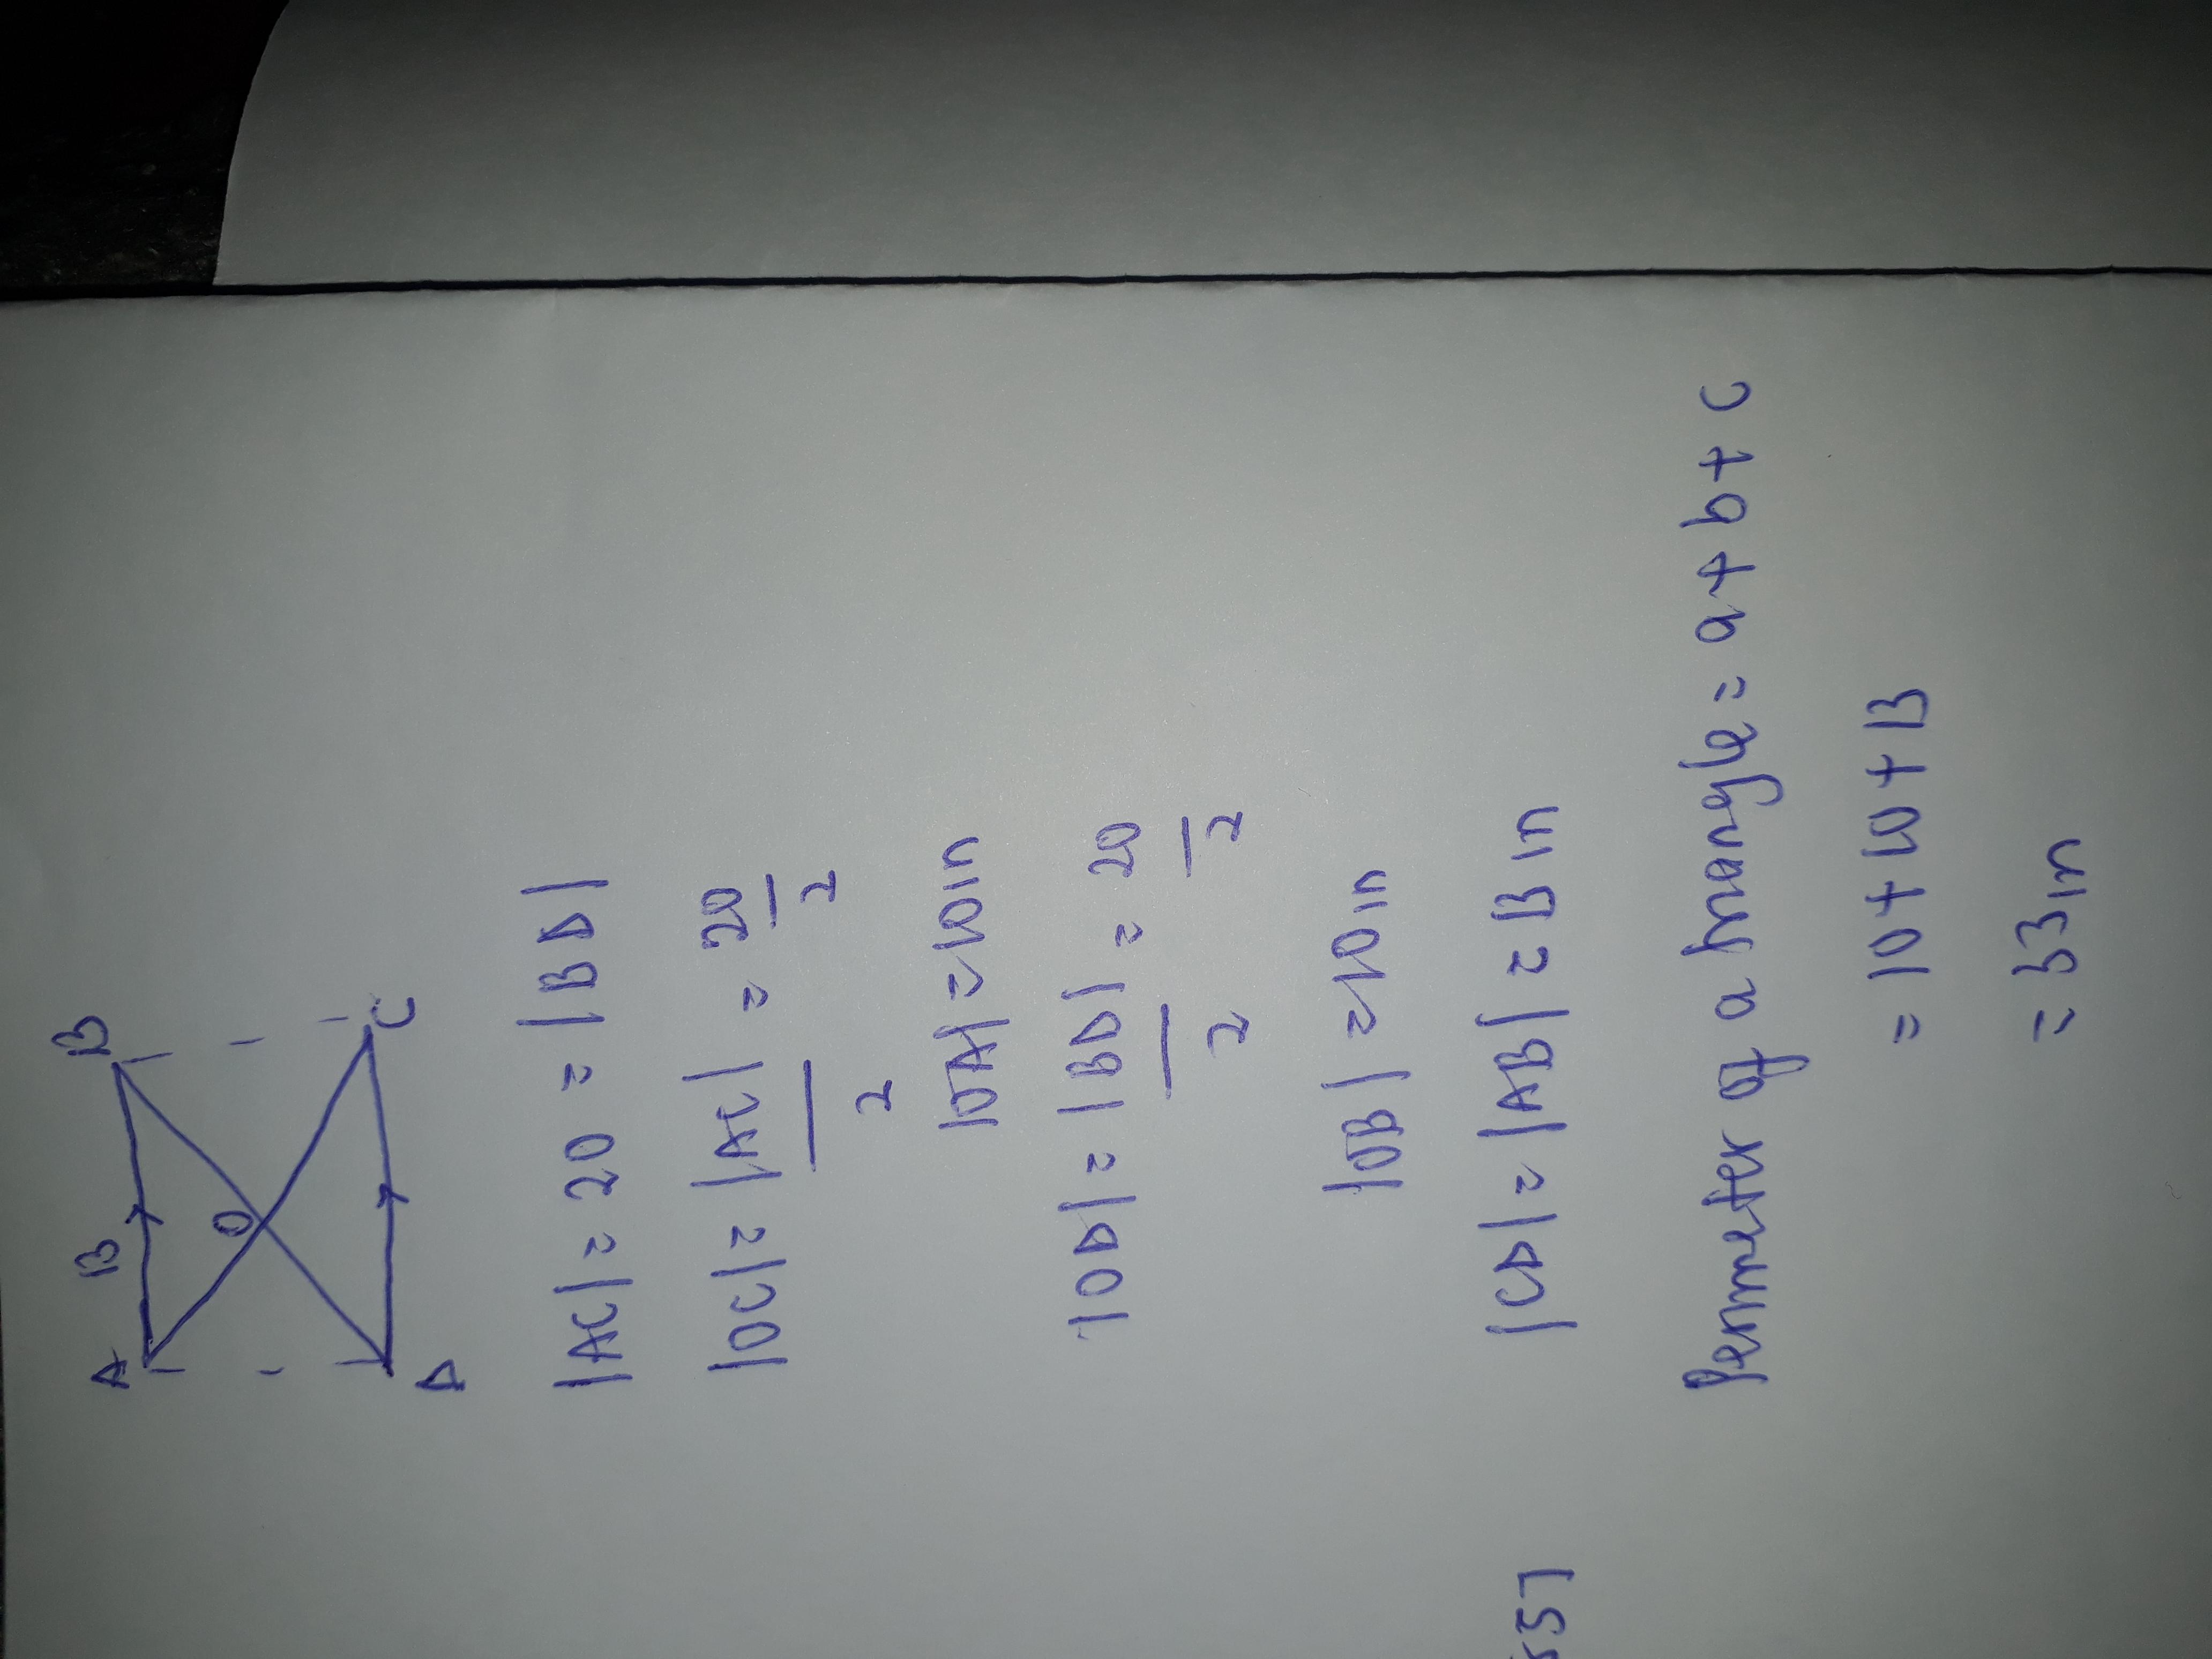 A 13 B
O
D C
|AC| = 20 = |BD|
|OC| = |AC| = 20
2 2
|OA| = 10in
|OD| = |BD| = 20
2 2
|OB| = 10in
|CD| = |AB| = 13in
Perimeter of a triangle = a + b + c
= 10 + 10 + 13
= 33in